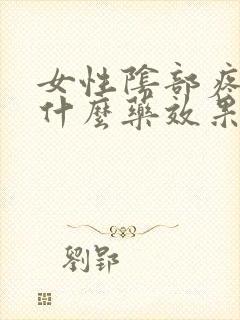 女性陰部疼
什麼藥效果
劉郢